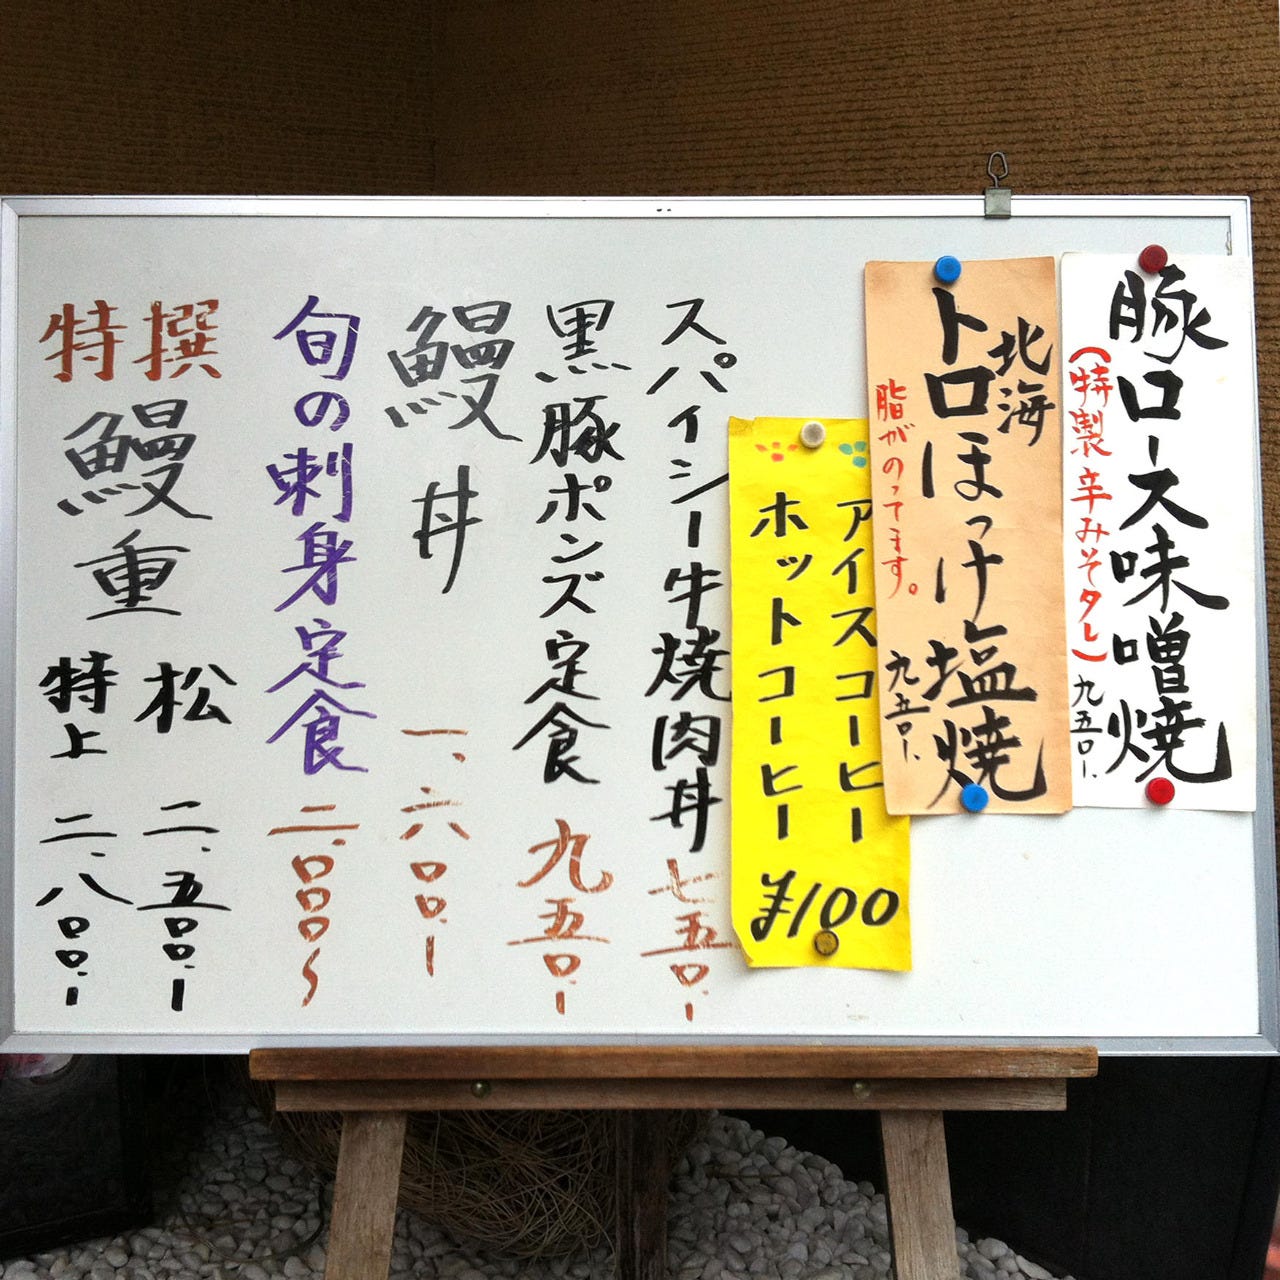 豚ロース味噌焼
(特製辛みそタレ)
九五〇、
北海
トロほっけ塩焼
脂がのってます。
九五〇、
アイスコーヒー
ホットコーヒー
¥100
スパイシー牛焼肉丼 七五〇、
黒豚ポンズ定食 九五〇、
鰻丼 一、六〇〇、
旬の刺身定食 二、〇〇〇〜
特撰
鰻重
松 二、五〇〇、
特上 二、八〇〇、